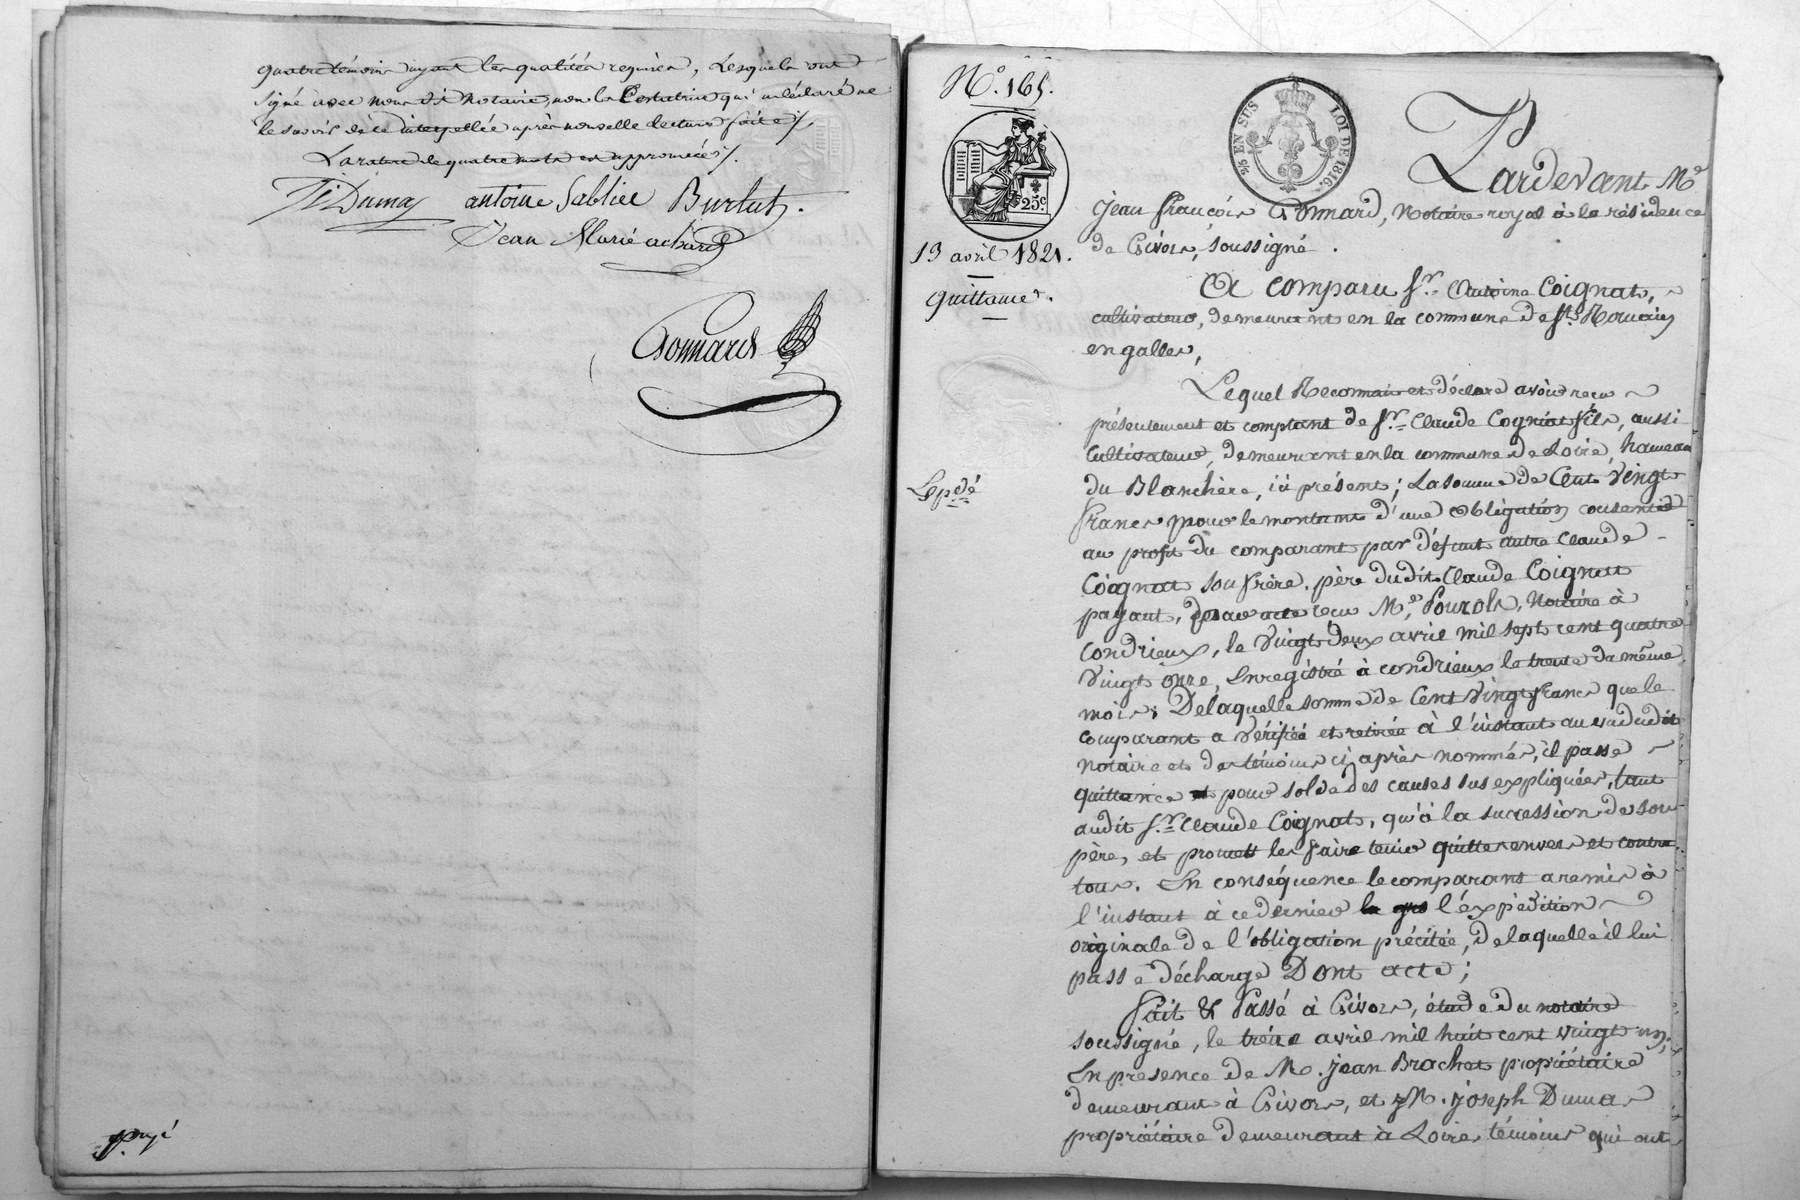 quatre témoins ayant les qualités requises, Lesquels ont
signé avec nous dt notaire, non la Testatrice qui a déclaré ne
le savoir de ce interpellée après nouvelle lecture faite /.
La rature de quatre mots est approuvée /.
Dumas antoine Sablier Burlat.
Jean Marie achard
Gonnard
payé
N.º 165.
25c.
3/5 EN SUS LOI DE 1816.
13 avril 1821.
quittance.
Lepdé
Pardevant Me
jean françois Gonnard, Notaire royal à la résidence
de Givors, soussigné.
A comparu Sr. Antoine Coignat,
cultivateur, demeurant en la commune de St. Romain
en galles,
Lequel Reconnait et déclare avoir reçu
présentement et comptant de Sr. Claude Cogniat fils, aussi
cultivateur, demeurant en la commune de Loire, hameau
du Blanchère, ici présent; La somme de Cent Vingt
francs pour le montant d'une obligation consentie
au profit du comparant par défunt autre Claude
Coignat son frère, père dudit Claude Coignat
payant, devant Me. Pourols, Notaire à
Condrieux, le Vingt deux avril mil sept cent quatre
Vingt onze, Enregistré à condrieux le trente du même
mois; De laquelle somme de Cent Vingt francs que le
comparant a Vérifiée et retirée à l'instant au vu dudit
notaire et des témoins ci après nommés, il passe
quittance et pour solde des causes sus expliquées, tant
audit Sr. Claude Coignat, qu'à la succession de son
père, et promet les faire tenir quittes envers et contre
tous. En conséquence le comparant a remis à
l'instant à ce dernier la gro l'éxpédition
originale de l'obligation précitée, de laquelle il lui
passe décharge Dont acte;
Fait & Passé à Givors, étude du notaire
soussigné, le treize avril mil huit cent vingt un,
En présence de M. jean Brachet propriétaire
demeurant à Givors, et M. joseph Dumas
propriétaire demeurant à Loire, témoins qui ont